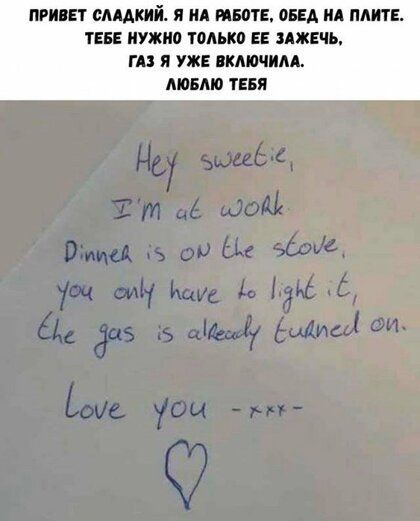 ПРИВЕТ СЛАДКИЙ. Я НА РАБОТЕ, ОБЕД НА ПЛИТЕ.
ТЕБЕ НУЖНО ТОЛЬКО ЕЕ ЗАЖЕЧЬ,
ГАЗ Я УЖЕ ВКЛЮЧИЛА.
ЛЮБЛЮ ТЕБЯ
Hey sweetie,
I'm at work
Dinner is on the stove,
you only have to light it,
the gas is already turned on.
Love you -xxx-